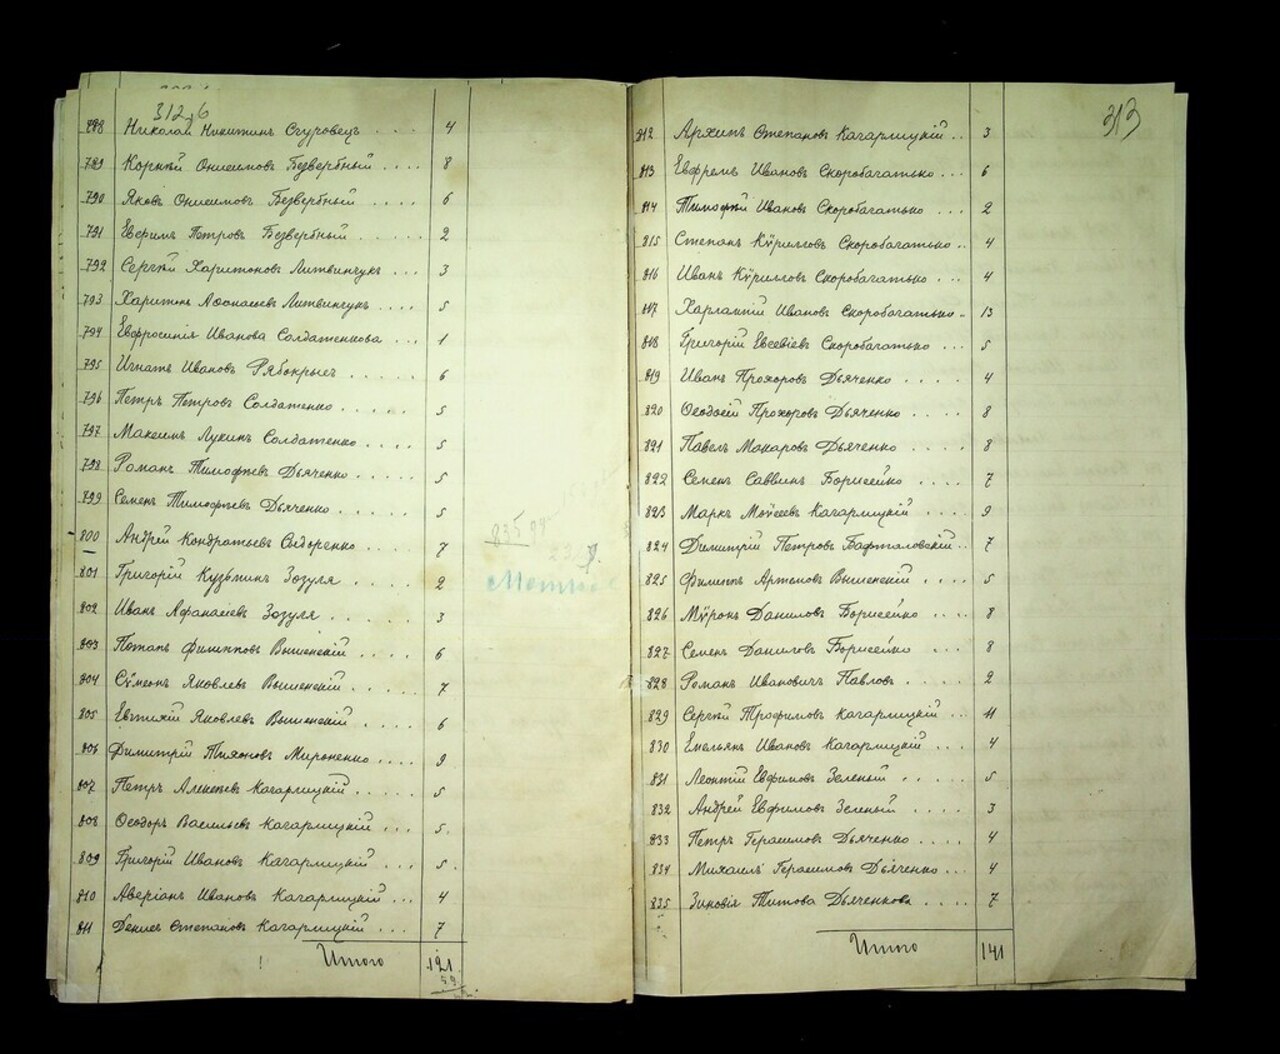 312 б
788 Николай Никитинъ Сгуровецъ . . . . 4
789 Корнѣй Онисимовъ Безвербный . . . . 8
790 Яковъ Онисимовъ Безвербный . . . . 6
791 Евфимъ Петровъ Безвербный . . . . . 2
792 Сергѣй Харитоновъ Литвинчукъ . . . 3
793 Харитонъ Аѳонасьевъ Литвинчукъ . . . . 5
794 Евфросинія Иванова Солдатенкова . . . 1
795 Игнатъ Ивановъ Рябокрысъ . . . . . 6
796 Петръ Петровъ Солдатенко . . . . . 5
797 Максимъ Лукинъ Солдатенко . . . . 5
798 Романъ Тимофѣевъ Дьяченко . . . . 5
799 Семенъ Тимофѣевъ Дьяченко . . . . . 5
800 Андрей Кондратьевъ Сидоренко . . . . 7
801 Григорій Кузьминъ Зозуля . . . . 2
802 Иванъ Афанасіевъ Зозуля . . . . . 3
803 Потапъ Филипповъ Вышенскій . . . . 6
804 Сѵмеонъ Яковлевъ Вышенскій . . . . 7
805 Евтихій Яковлевъ Вышенскій . . . . 6
806 Димитрій Тихоновъ Мироненко . . . . 9
807 Петръ Алексѣевъ Кагарлицкій . . . . . 5
808 Ѳеодоръ Васильевъ Кагарлицкій . . . 5.
809 Григорій Ивановъ Кагарлицкій . . . 5.
810 Аверіанъ Ивановъ Кагарлицкій . . . 4
811 Денисъ Степановъ Кагарлицкій . . . 7
Итого 121
835
313
812 Архипъ Степановъ Кагарлицкій . . 3
813 Евфремъ Ивановъ Скоробагатько . . . 6
814 Тимофѣй Ивановъ Скоробагатько . . . 2
815 Степанъ Кѵрилловъ Скоробагатько . . 4
816 Иванъ Кѵрилловъ Скоробагатько . . . 4
817 Харлампій Ивановъ Скоробагатько . 13
818 Григорій Евсевіевъ Скоробагатько . . . 5
819 Иванъ Прохоровъ Дьяченко . . . . 4
820 Ѳеодосій Прохоровъ Дьяченко . . . . 8
821 Павелъ Макаровъ Дьяченко . . . . 8
822 Семенъ Саввинъ Борисейко . . . . 7
823 Маркъ Моѵсеевъ Кагарлицкій . . . . 9
824 Димитрій Петровъ Бафталовскій . . 7
825 Филиппъ Артемовъ Вышенскій . . . . 5
826 Мѵронъ Даниловъ Борисейко . . . . 8
827 Семенъ Даниловъ Борисейко . . . 8
828 Романъ Ивановичъ Павловъ . . . . 2
829 Сергѣй Трофимовъ Кагарлицкій . . . 11
830 Емельянъ Ивановъ Кагарлицкій . . . 4
831 Леонтій Евфимовъ Зеленый . . . . . 5
832 Андрей Евфимовъ Зеленый . . . . 3
833 Петръ Герасимовъ Дьяченко . . . . 4
834 Михаилъ Герасимовъ Дьяченко . . . 4
835 Зиновія Титова Дьяченкова . . . . 7
Итого 141